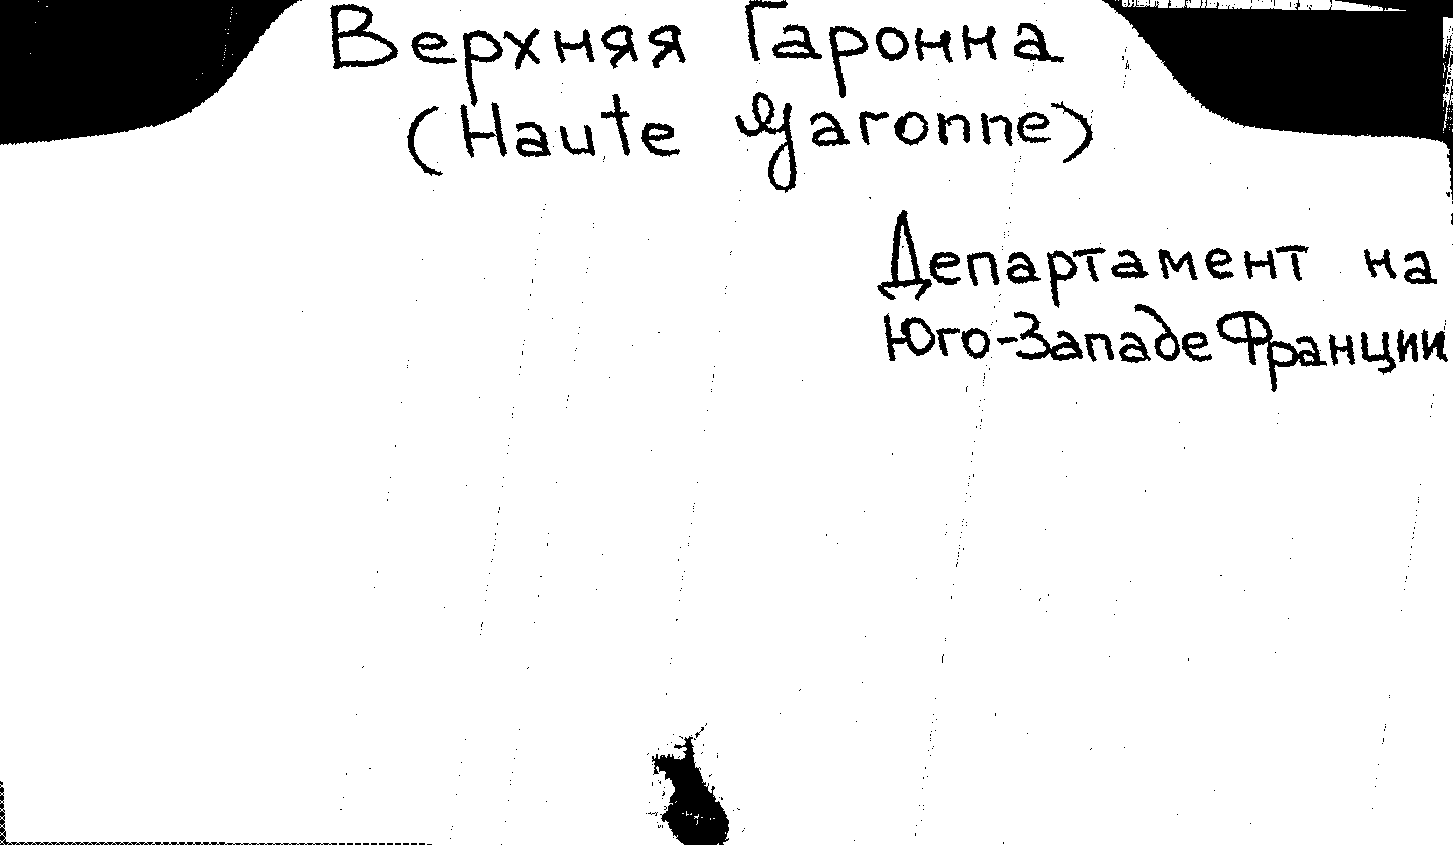 Верхняя Гаронна
(Haute Garonne)
Департамент на
Юго-Западе Франции